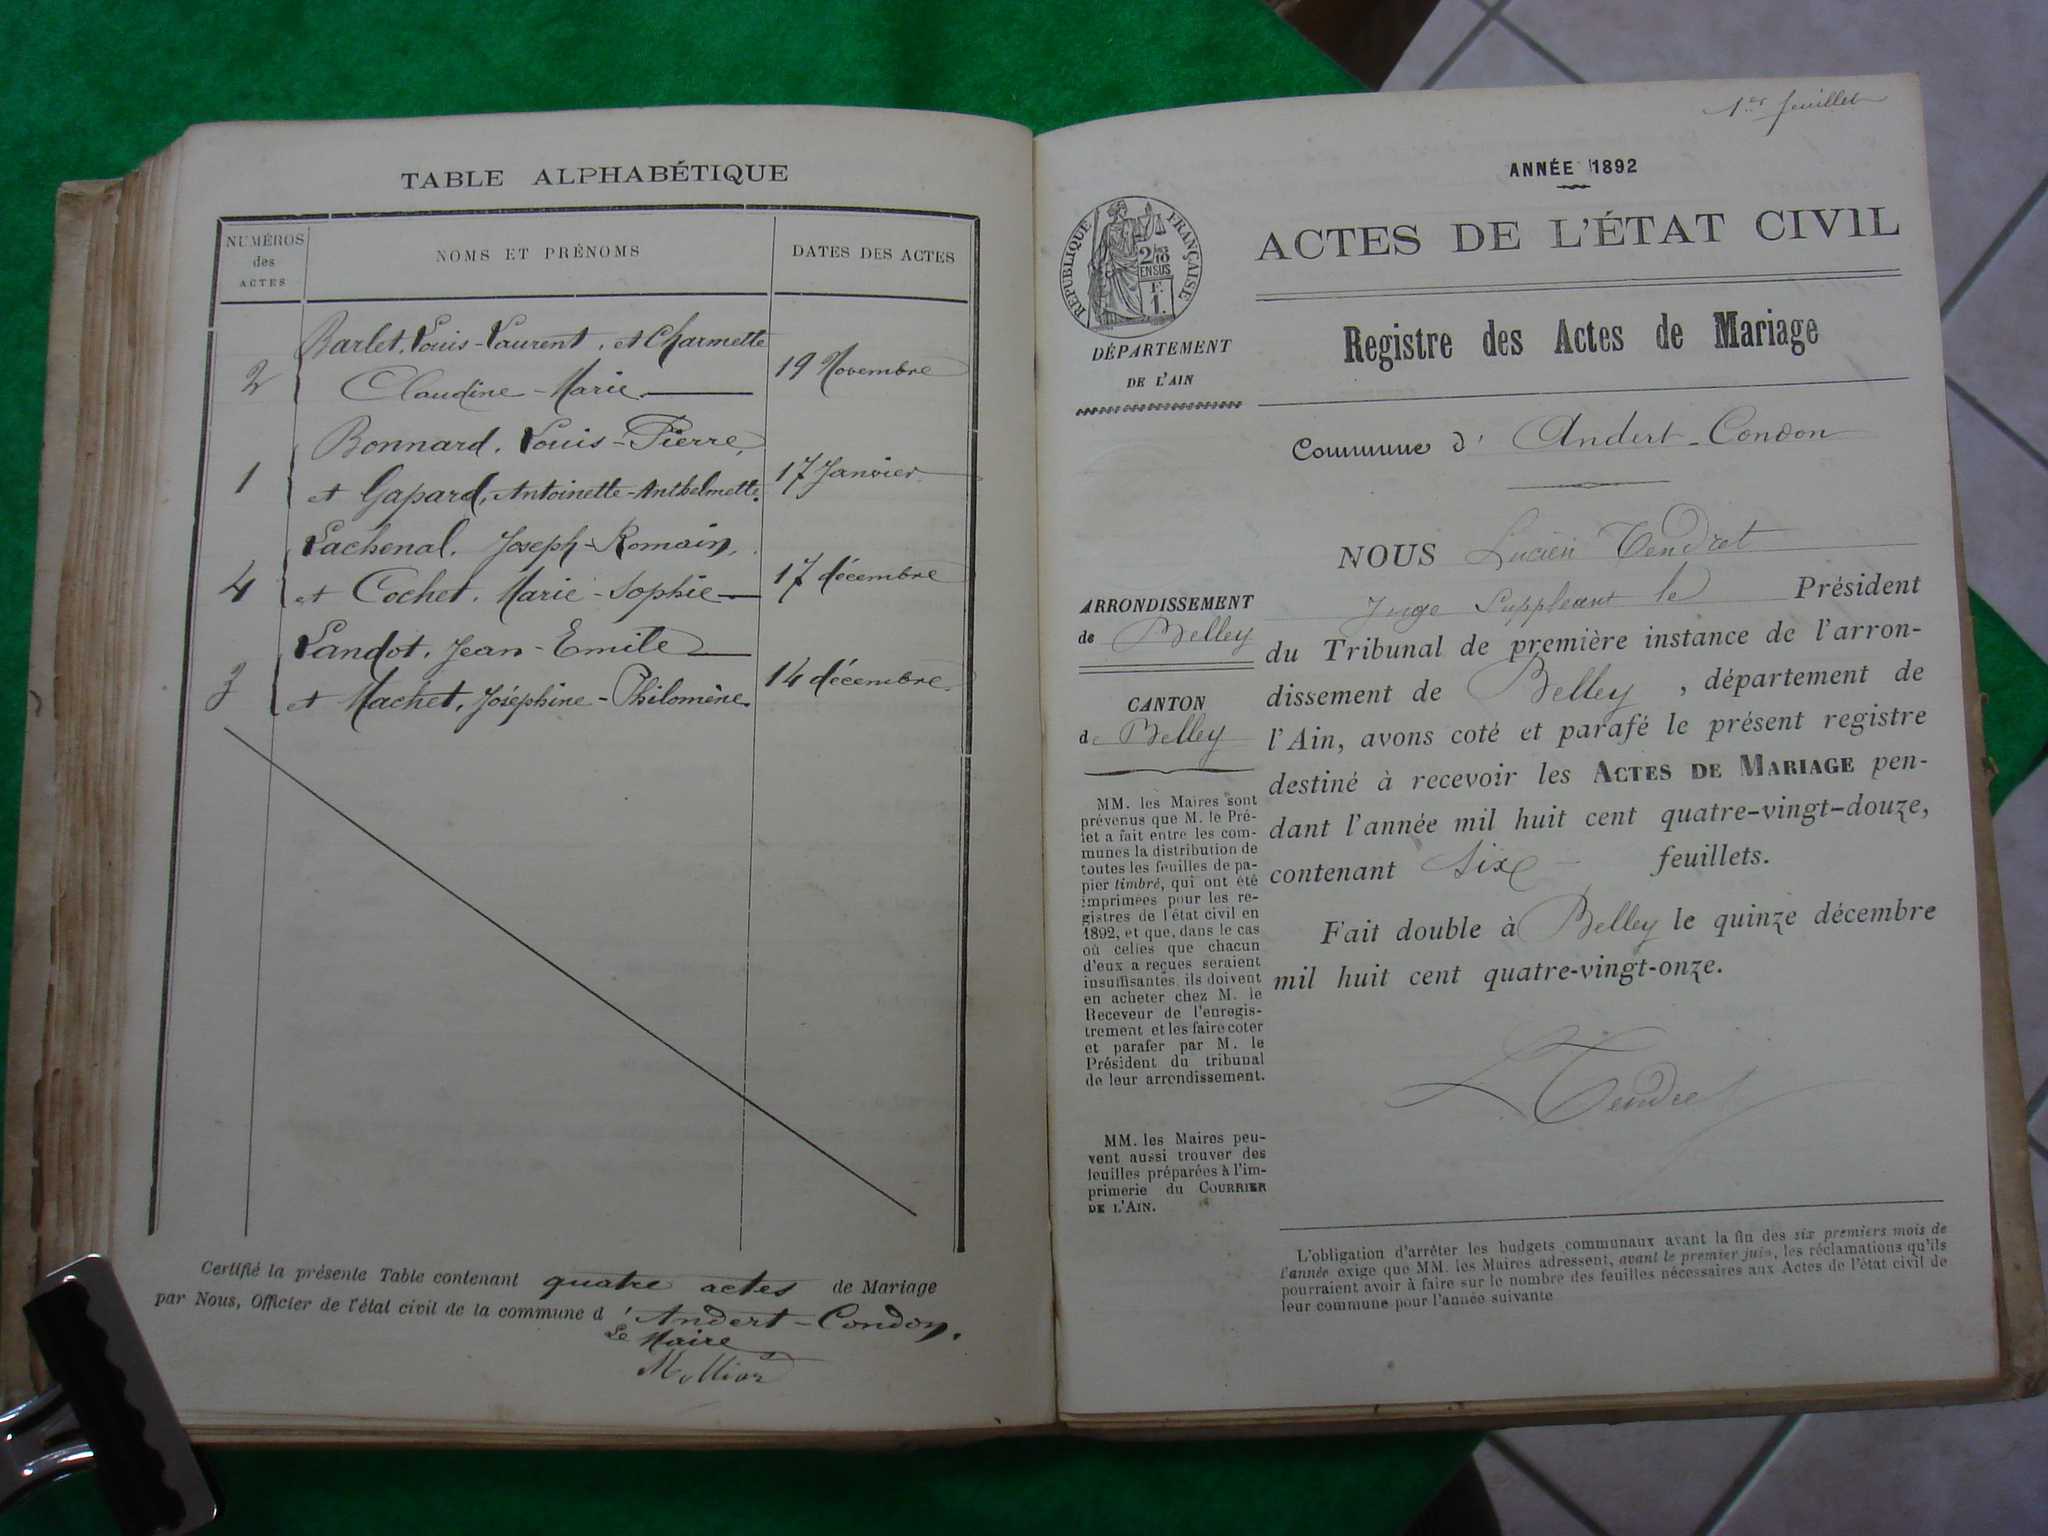 TABLE ALPHABÉTIQUE
NUMÉROS des ACTES
NOMS ET PRÉNOMS
DATES DES ACTES
Barlet, Louis-Laurent, et Charmette
2 Claudine-Marie 19 Novembre
Bonnard, Louis-Pierre,
1 et Gapard, Antoinette-Anthelmette. 17 Janvier
Lachenal, Joseph-Romain,
4 et Cochet, Marie-Sophie 17 décembre
Landot, Jean-Emile
3 et Machet, Joséphine-Philomène. 14 décembre.
Certifié la présente Table contenant quatre actes de Mariage
par Nous, Officier de l'état civil de la commune d'Andert-Condon.
Le Maire
1er feuillet
ANNÉE 1892
RÉPUBLIQUE FRANÇAISE
2/10 EN SUS
F.
1.
ACTES DE L'ÉTAT CIVIL
Registre des Actes de Mariage
DÉPARTEMENT
DE L'AIN
Commune d' Andert-Condon
ARRONDISSEMENT
de Belley
CANTON
de Belley
MM. les Maires sont
prévenus que M. le Pré-
fet a fait entre les com-
munes la distribution de
toutes les feuilles de pa-
pier timbré, qui ont été
imprimées pour les re-
gistres de l'état civil en
1892, et que, dans le cas
où celles que chacun
d'eux a reçues seraient
insuffisantes, ils doivent
en acheter chez M. le
Receveur de l'enregis-
trement et les faire coter
et parafer par M. le
Président du tribunal
de leur arrondissement.
MM. les Maires peu-
vent aussi trouver des
feuilles préparées à l'im-
primerie du COURRIER
DE L'AIN.
NOUS Lucien Tendret
Juge Suppléant le Président
du Tribunal de première instance de l'arron-
dissement de Belley, département de
l'Ain, avons coté et parafé le présent registre
destiné à recevoir les ACTES DE MARIAGE pen-
dant l'année mil huit cent quatre-vingt-douze,
contenant six feuillets.
Fait double à Belley le quinze décembre
mil huit cent quatre-vingt-onze.
Tendret
L'obligation d'arrêter les budgets communaux avant la fin des six premiers mois de
l'année exige que MM. les Maires adressent, avant le premier juin, les réclamations qu'ils
pourraient avoir à faire sur le nombre des feuilles nécessaires aux Actes de l'état civil de
leur commune pour l'année suivante